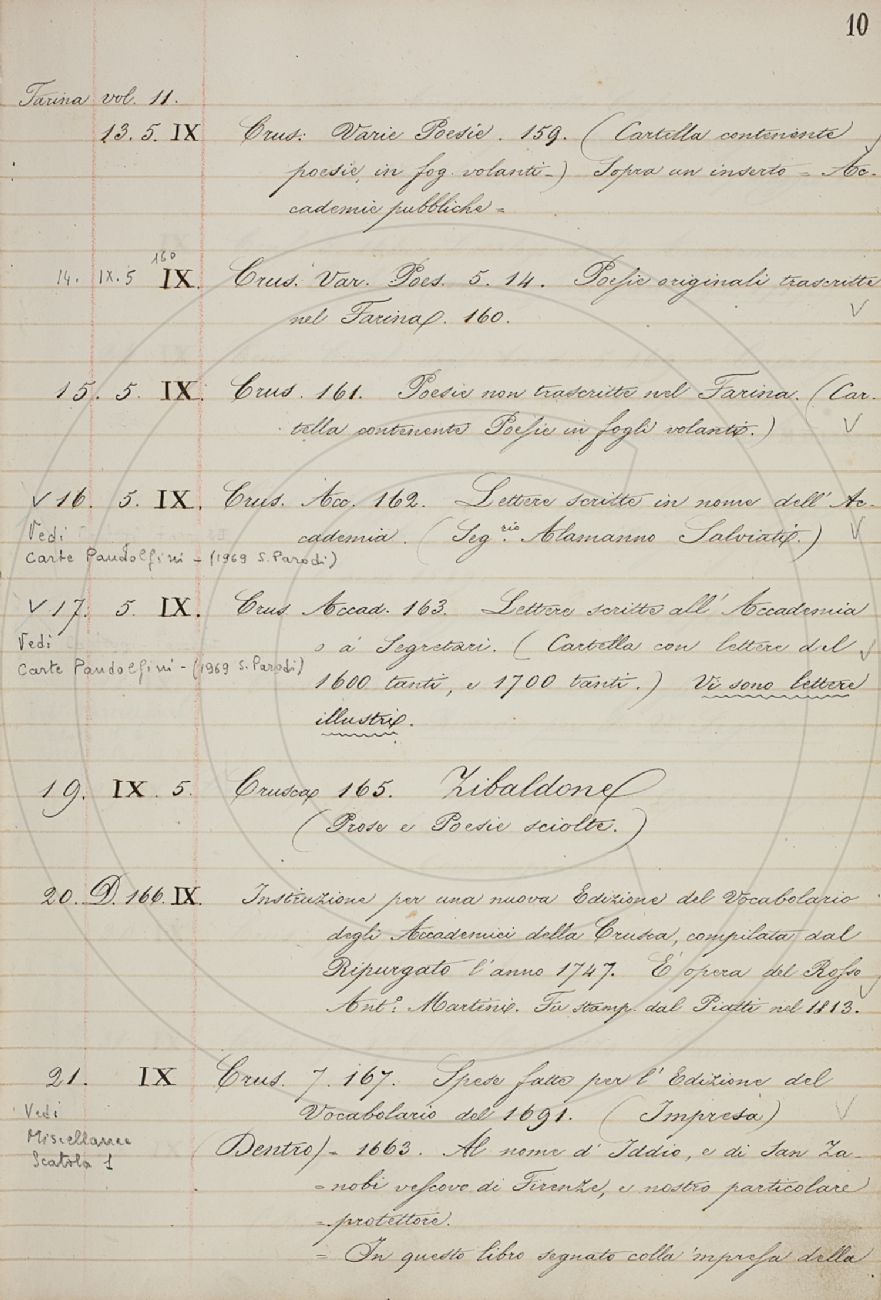 10
Farina vol. 11.
13. 5. IX Crus: Varie Poesie. 159. (Cartella contenente
poesie in fog. volanti-) Sopra un inserto = Ac-
cademie pubbliche =
14. IX. 5 160 IX. Crus. Var. Poes. 5. 14. Poesie originali trascritte
nel Farina. 160.
15. 5. IX. Crus. 161. Poesie non trascritte nel Farina. (Car-
tella contenente Poesie in fogli volanti.)
V 16. 5. IX. Crus. Acc. 162. Lettere scritte in nome dell' Ac-
Vedi cademia. (Seg.rio Alamanno Salviati.)
Carte Pandolfini - (1969 S. Parodi)
V 17. 5. IX. Crus Accad. 163. Lettere scritte all' Accademia
Vedi o a' Segretari. (Cartella con lettere del
Carte Pandolfini - (1969 S. Parodi) 1600 tanti, e 1700 tanti.) Vi sono lettere
illustri.
19. IX. 5. Crusca 165. Zibaldone
(Prose e Poesie sciolte.)
20. D. 166. IX. Instruzione per una nuova Edizione del Vocabolario
degli Accademici della Crusca, compilata dal
Ripurgato l'anno 1747. E' opera del Rosso
Ant.o Martini. Fu stamp. dal Piatti nel 1813.
21. IX Crus. 7. 167. Spese fatte per l' Edizione del
Vedi Vocabolario del 1691. (Impresa)
Miscellanee (Dentro) = 1663. Al nome d' Iddio, e di San Za-
Scatola 1
=nobi vescovo di Firenze, e nostro particolare
=protettore.
= In questo libro segnato colla 'mpresa della